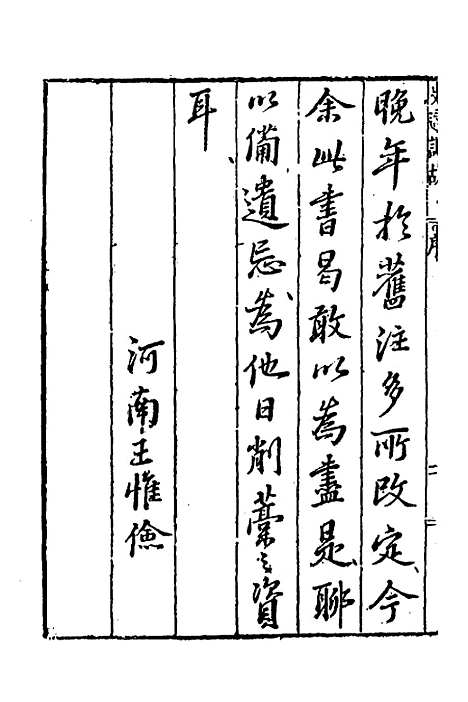 晚年於舊注多所改定今
余此書曷敢以為盡是聊
以備遺忘為他日削藁之資
耳
河南王惟儉